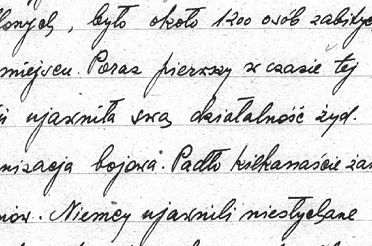 lonych, było około 1200 osób zabitych
miejscu. Poraz pierwszy w czasie tej
ujawniła swą działalność żyd.
nizacja bojowa. Padło kilkanaście żan
ów. Niemcy ujawnili niesłychane